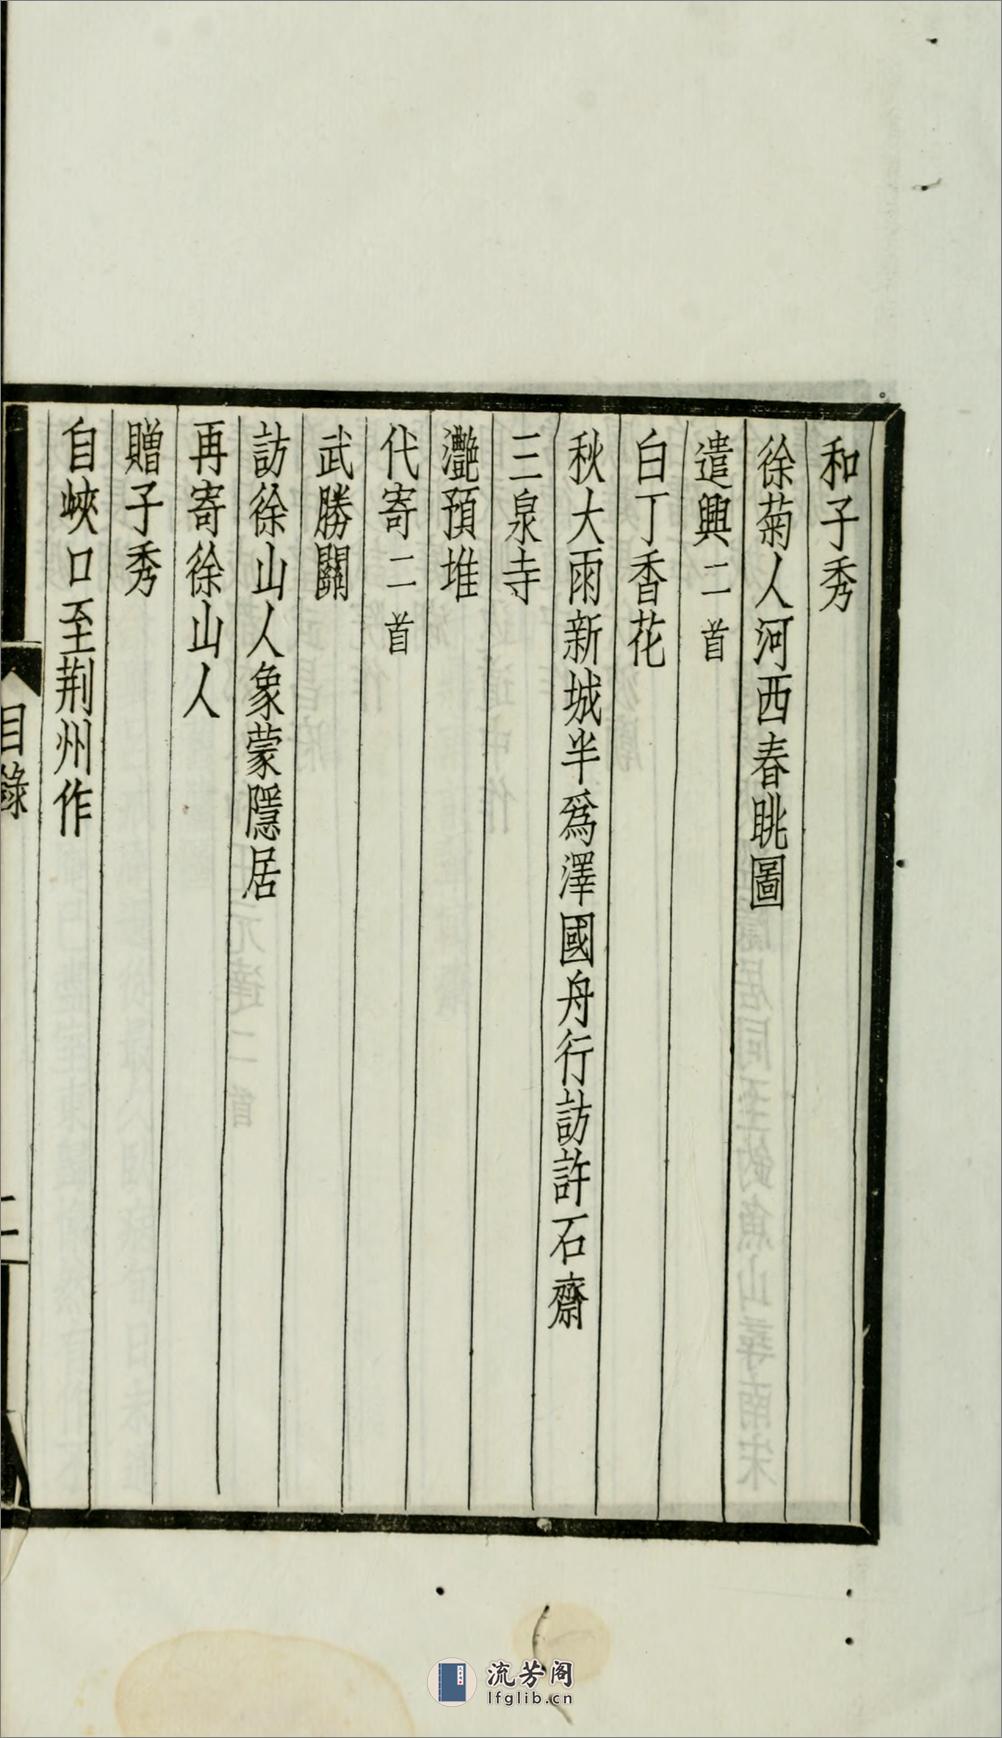 和子秀
徐菊人河西春眺圖
遣興二首
白丁香花
秋大雨新城半爲澤國舟行訪許石齋
三泉寺
灧預堆
代寄二首
武勝關
訪徐山人象蒙隱居
再寄徐山人
贈子秀
自峽口至荆州作
目錄
二
流芳阁
lfglib.cn